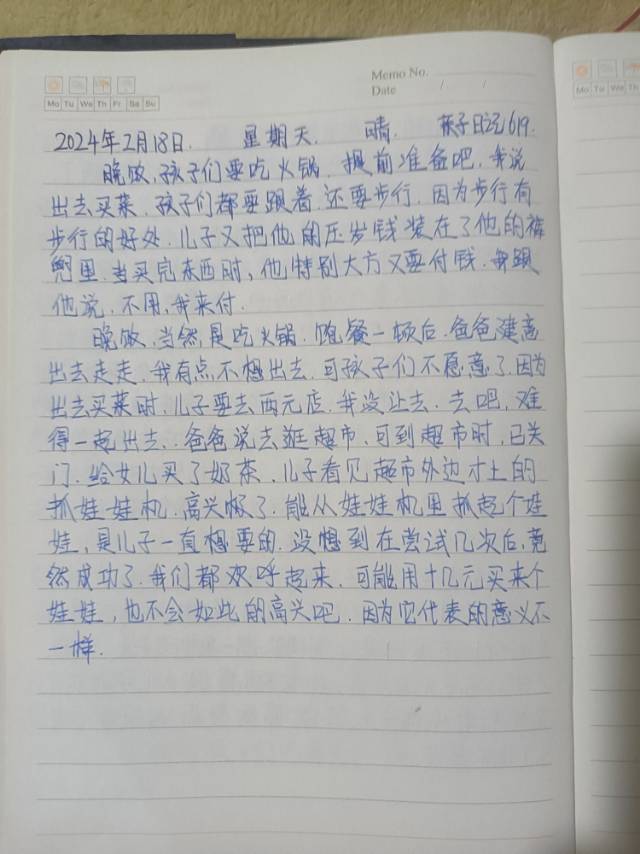 Memo No.
Date / /
Mo Tu We Th Fr Sa Su
Mo Tu We Th
2024年2月18日. 星期天. 晴. 亲子日记619.
晚饭,孩子们要吃火锅.提前准备吧.我说
出去买菜.孩子们都要跟着.还要步行.因为步行有
步行的好处.儿子又把他的压岁钱装在了他的裤
兜里.当买完东西时,他特别大方又要付钱.我跟
他说.不用,我来付.
晚饭,当然是吃火锅.饱餐一顿后.爸爸建意
出去走走.我有点不想出去.可孩子们不愿意了.因为
出去买菜时.儿子要去两元店.我没让去.去吧,难
得一起出去.爸爸说去逛超市,可到超市时,已关
门.给女儿买了奶茶.儿子看见超市外边才上的
抓娃娃机.高兴极了.能从娃娃机里抓起个娃
娃,是儿子一直想要的.没想到在尝试几次后,竟
然成功了.我们都欢呼起来.可能用十几元买来个
娃娃,也不会如此的高兴吧.因为它代表的意义不
一样.